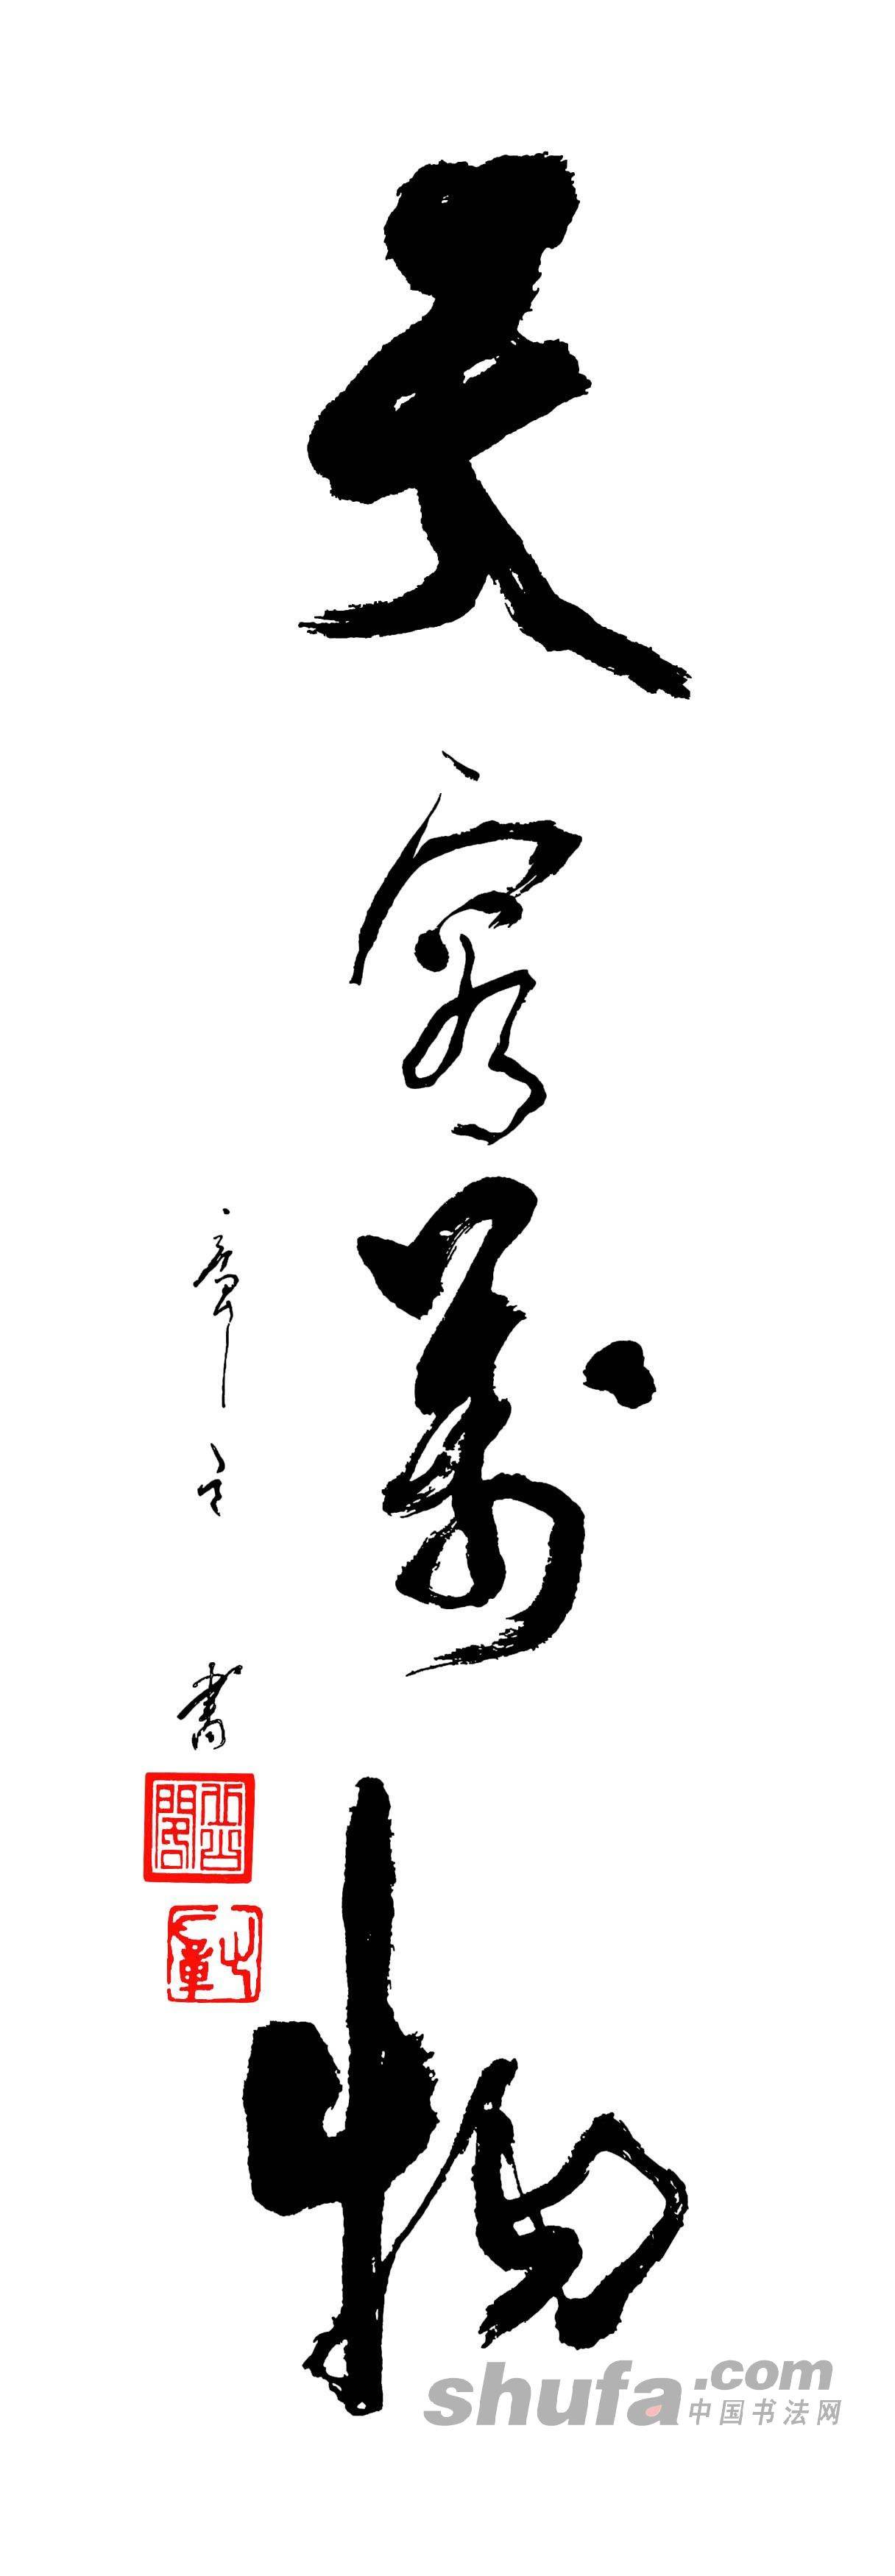 天容万物
章之 書
shufa.com
中国书法网